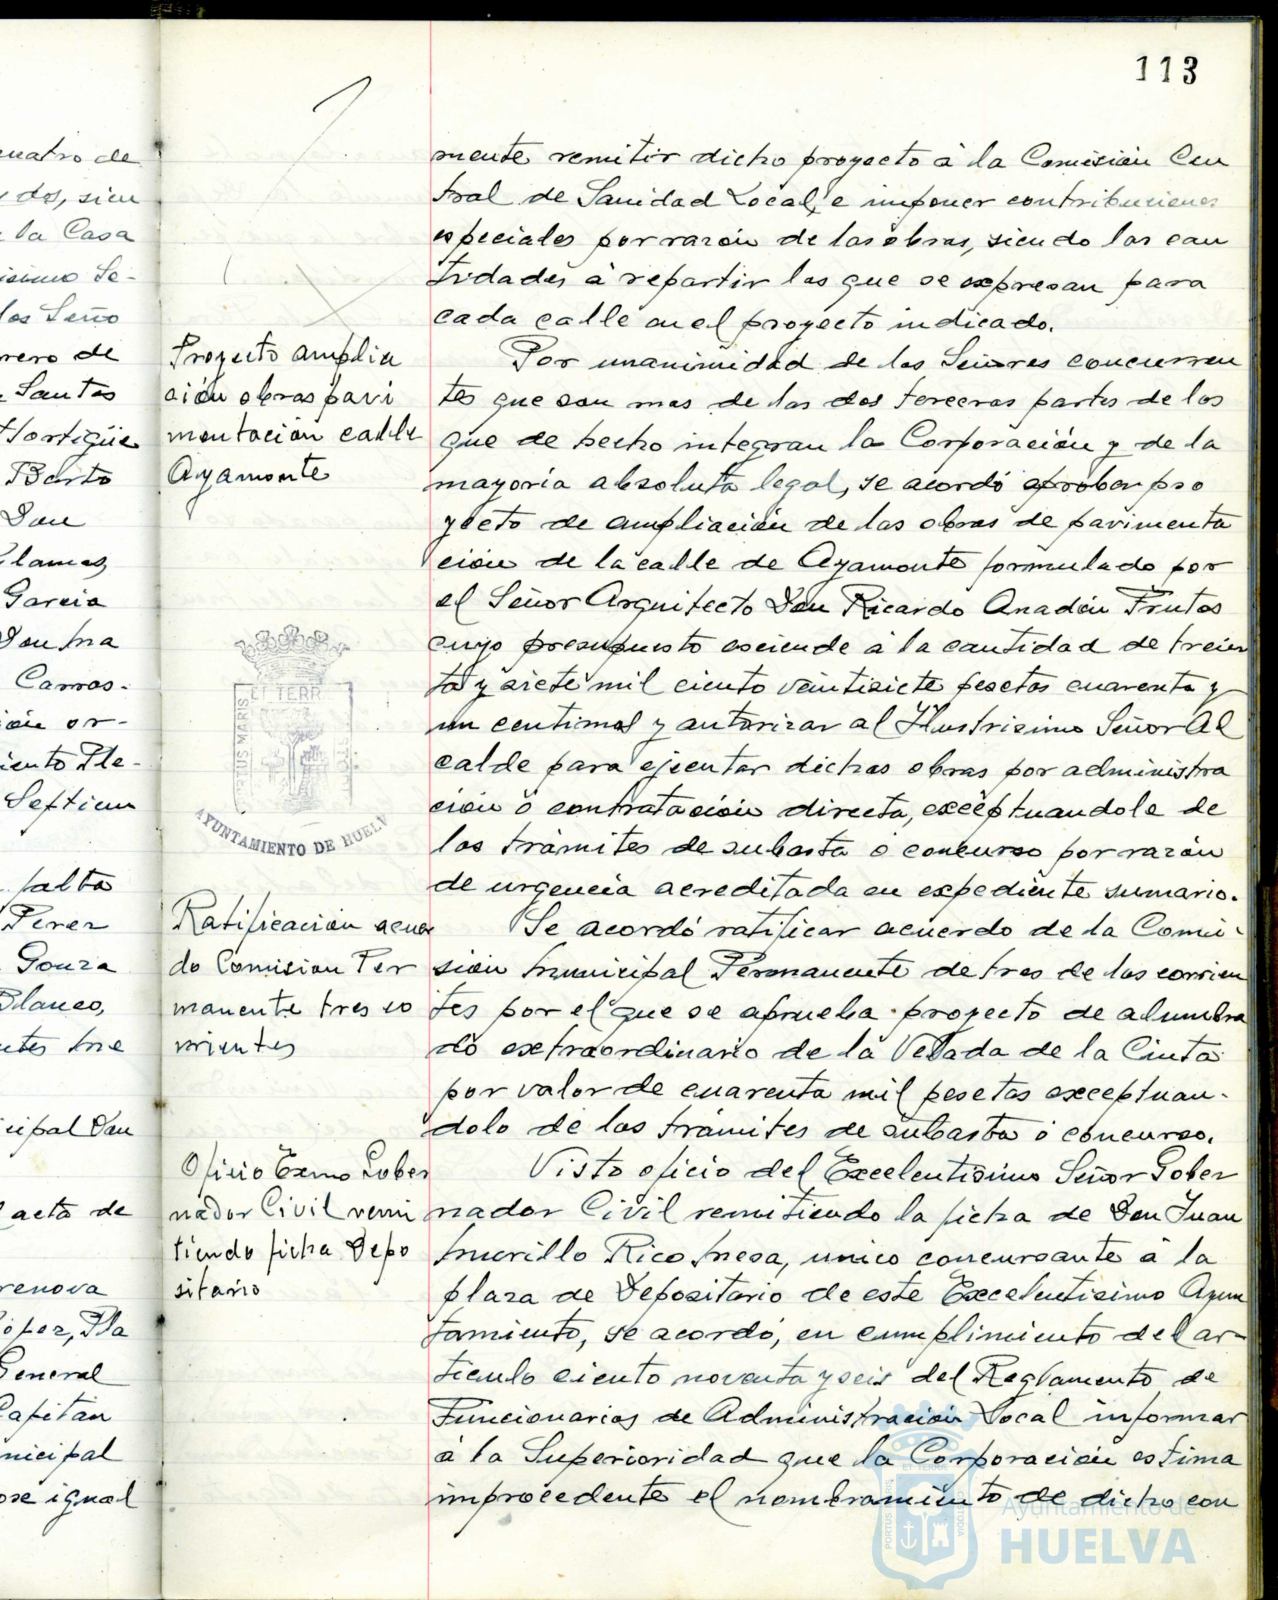 113
cuatro de
y dos, sien
la Casa
isimo Se-
los Seño
rero de
Santos
Hortigüe
Barto
Don
lamas,
Garcia
Don Ma
Carras-
ión or-
iento Ple-
Septiem
falta
Perez
Gonza
Blanco,
cipal Don
acta de
renova
López, Pla
General
Capitan
nicipal
ose igual
Proyecto amplia
ción obras pavi
mentación calle
Ayamonte
ET TERR
PORTUS MARIS
AYUNTAMIENTO DE HUELV
Ratificación acuer
do Comision Per
manente tres co
rrientes
Oficio Exmo Gober
nador Civil remi
tiendo ficha Depo
sitario
mente remitir dicho proyecto á la Comisión Cen
tral de Sanidad Local, e imponer contribuciones
especiales por razón de las obras, siendo las can
tidades á repartir las que se expresan para
cada calle en el proyecto indicado.
Por unanimidad de los Señores concurren
tes que son mas de las dos terceras partes de los
que de hecho integran la Corporación y de la
mayoría absoluta legal, se acordó aprobar pro
yecto de ampliación de las obras de pavimenta
ción de la calle de Ayamonte formulado por
el Señor Arquitecto Don Ricardo Anadón Frutos
cuyo presupuesto asciende á la cantidad de trein
ta y siete mil ciento veintisiete pesetas cuarenta y
un centimos y autorizar al Ilustrisimo Señor Al
calde para ejecutar dichas obras por administra
ción ó contratación directa, exceptuandola de
los trámites de subasta ó concurso por razón
de urgencia acreditada en expediente sumario.
Se acordó ratificar acuerdo de la Comi-
sión Municipal Permanente de tres de los corrien
tes por el que se aprueba proyecto de alumbra
do extraordinario de la Velada de la Cinta
por valor de cuarenta mil pesetas exceptuan-
dolo de los trámites de subasta ó concurso.
Visto oficio del Excelentisimo Señor Gober
nador Civil remitiendo la ficha de Don Juan
Murillo Rico Mesa, unico concursante á la
plaza de Depositario de este Excelentisimo Ayun
tamiento, se acordó, en cumplimiento del ar-
ticulo ciento noventa y seis del Reglamento de
Funcionarios de Administración Local informar
á la Superioridad que la Corporación estima
improcedente el nombramiento de dicho con
Ayuntamiento de
HUELVA